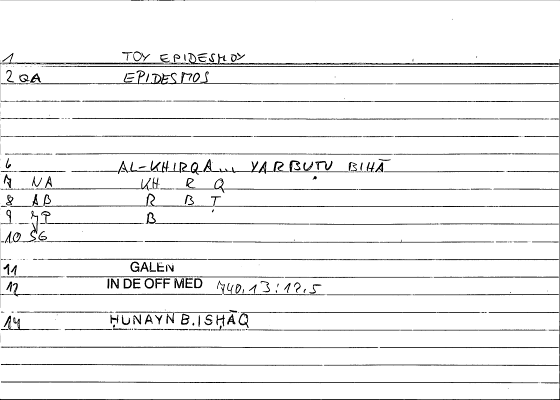 1 TOY EPIDESMOY
2 QA EPIDESMOS
6 AL-KHIRQA... YARBUṬU BIHĀ
7 NA KH R Q
8 AB R B Ṭ
9 JP B
10 SG
11 GALEN
12 IN DE OFF MED 740,13:12,5
14 ḤUNAYN B.ISḤĀQ